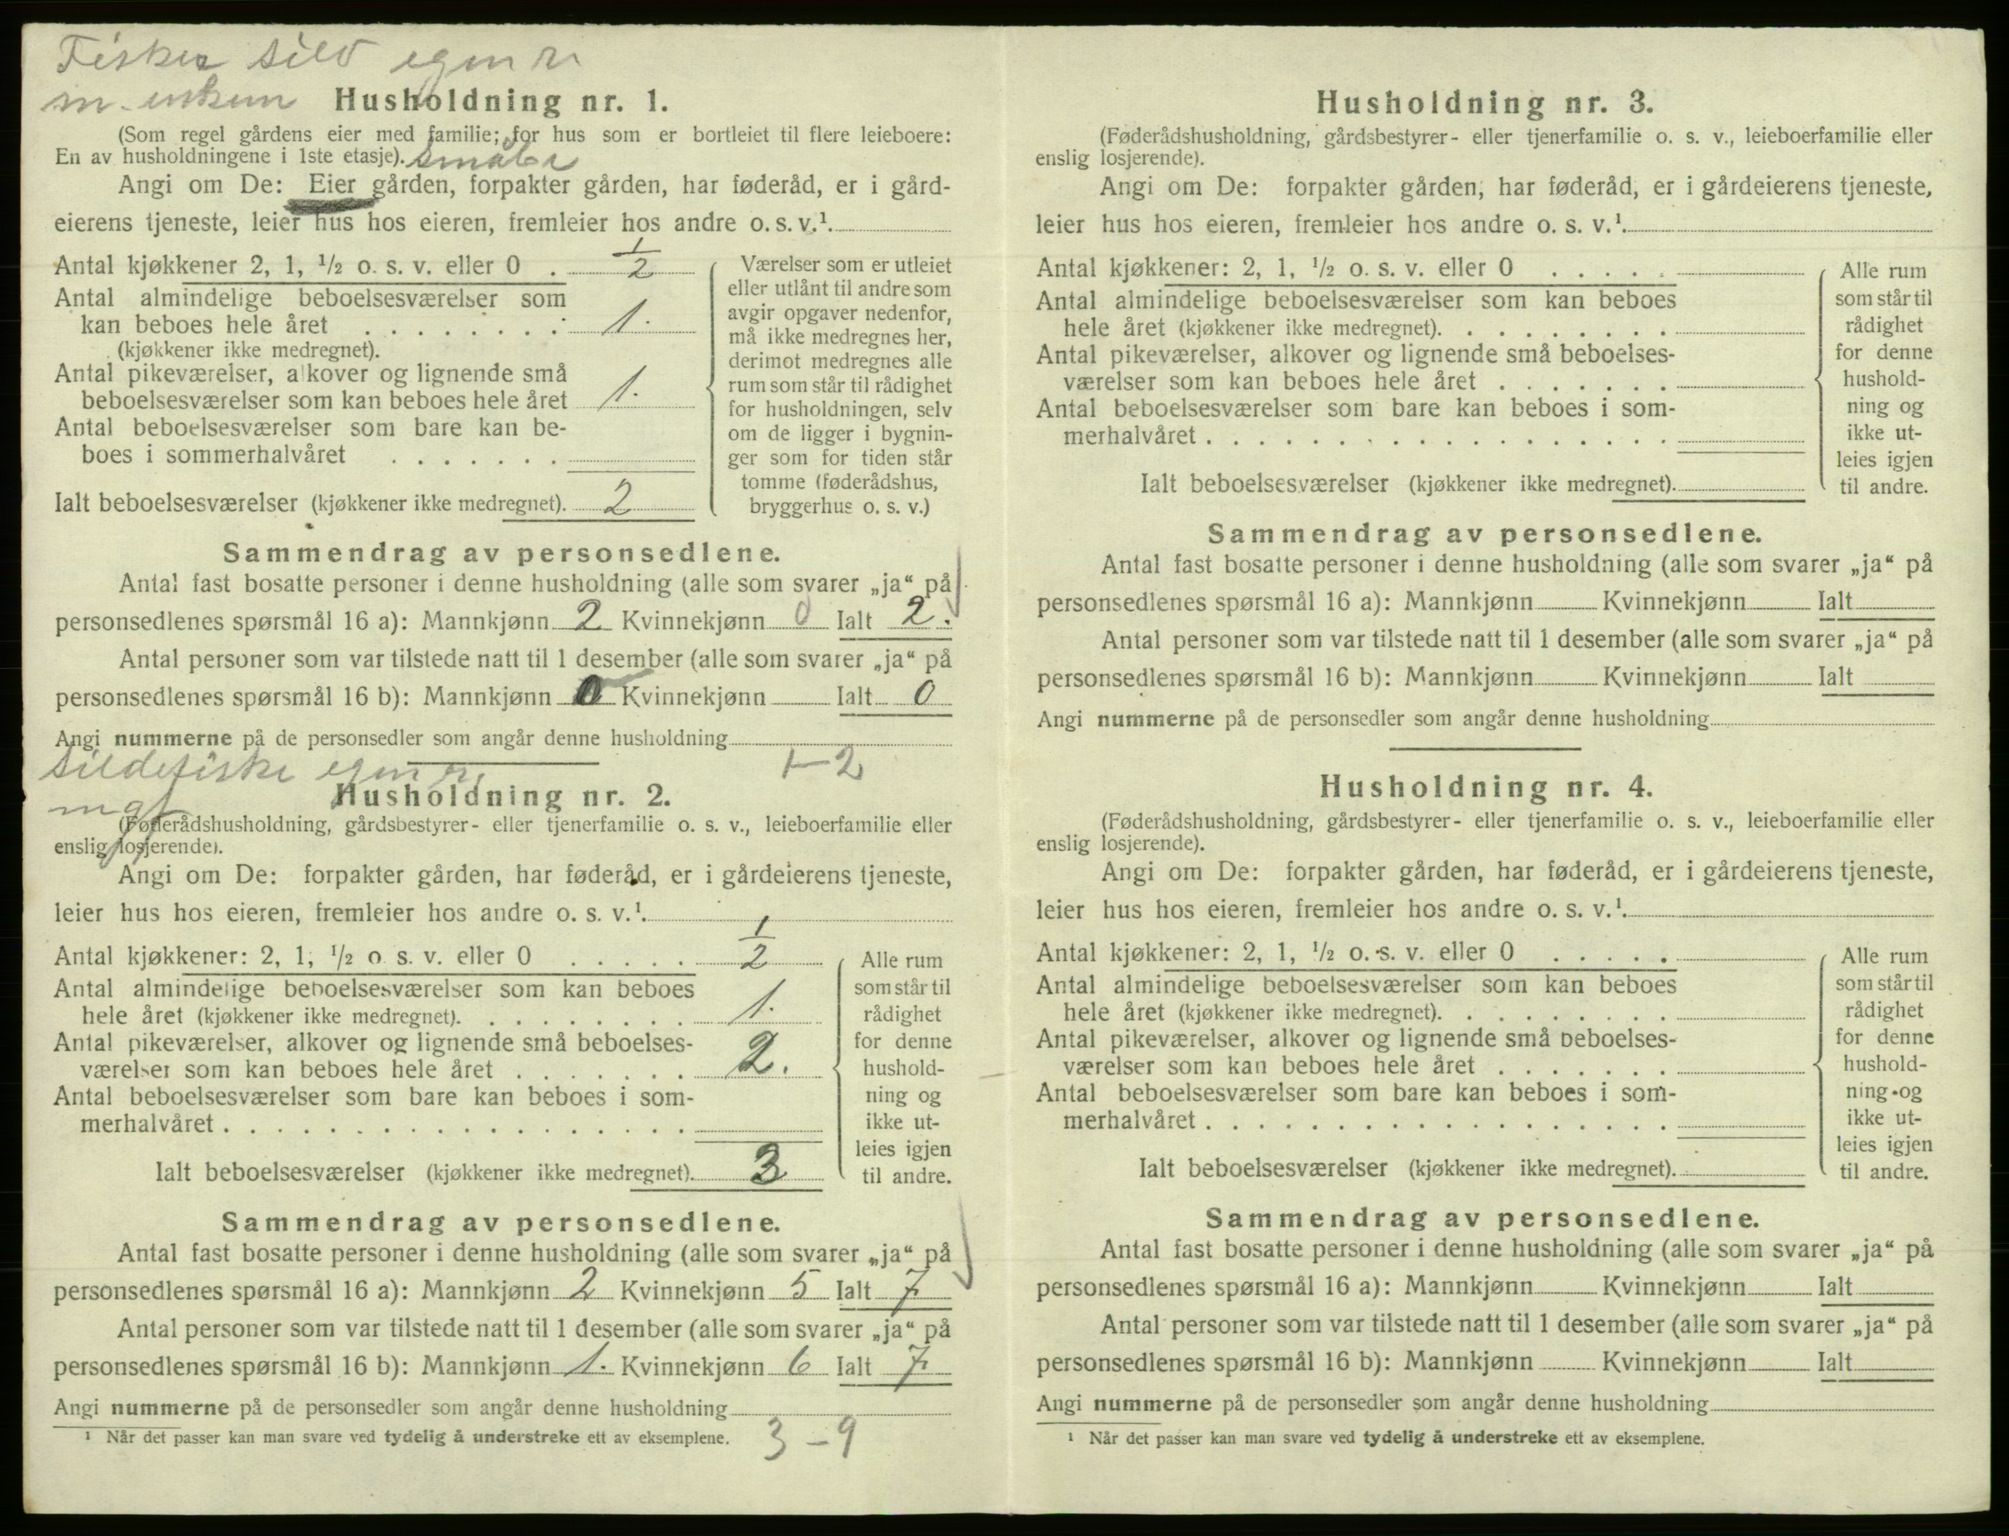 Fisker sild egen r.
m. enkem
Husholdning nr. 1.
(Som regel gårdens eier med familie; for hus som er bortleiet til flere leieboere:
En av husholdningene i 1ste etasje). småbr
Angi om De: Eier gården, forpakter gården, har føderåd, er i gård-
eierens tjeneste, leier hus hos eieren, fremleier hos andre o. s. v.¹
Antal kjøkkener 2, 1, ½ o. s. v. eller 0 . 1/2
Antal almindelige beboelsesværelser som
kan beboes hele året . . . . . . . . 1.
(kjøkkener ikke medregnet).
Antal pikeværelser, alkover og lignende små
beboelsesværelser som kan beboes hele året 1.
Antal beboelsesværelser som bare kan be-
boes i sommerhalvåret . . . . . . .
Ialt beboelsesværelser (kjøkkener ikke medregnet). 2
Værelser som er utleiet
eller utlånt til andre som
avgir opgaver nedenfor,
må ikke medregnes her,
derimot medregnes alle
rum som står til rådighet
for husholdningen, selv
om de ligger i bygnin-
ger som for tiden står
tomme (føderådshus,
bryggerhus o. s. v.)
Sammendrag av personsedlene.
Antal fast bosatte personer i denne husholdning (alle som svarer „ja“ på
personsedlenes spørsmål 16 a): Mannkjønn 2 Kvinnekjønn 0 Ialt 2.
Antal personer som var tilstede natt til 1 desember (alle som svarer „ja“ på
personsedlenes spørsmål 16 b): Mannkjønn 0 Kvinnekjønn Ialt 0
Angi nummerne på de personsedler som angår denne husholdning
1-2
Sildefiske egen r.
Husholdning nr. 2.
(Føderådshusholdning, gårdsbestyrer- eller tjenerfamilie o. s. v., leieboerfamilie eller
enslig losjerende).
Angi om De: forpakter gården, har føderåd, er i gårdeierens tjeneste,
leier hus hos eieren, fremleier hos andre o. s. v.¹
Antal kjøkkener: 2, 1, ½ o. s. v. eller 0 . . . . . 1/2
Antal almindelige beboelsesværelser som kan beboes
hele året (kjøkkener ikke medregnet). . . . . . . . . 1.
Antal pikeværelser, alkover og lignende små beboelses-
værelser som kan beboes hele året . . . . . . . 2.
Antal beboelsesværelser som bare kan beboes i som-
merhalvåret . . . . . . . . . . . . . . . . . .
Ialt beboelsesværelser (kjøkkener ikke medregnet). 3
Alle rum
som står til
rådighet
for denne
hushold-
ning og
ikke ut-
leies igjen
til andre.
Sammendrag av personsedlene.
Antal fast bosatte personer i denne husholdning (alle som svarer „ja“ på
personsedlenes spørsmål 16 a): Mannkjønn 2 Kvinnekjønn 5 Ialt 7
Antal personer som var tilstede natt til 1 desember (alle som svarer „ja“ på
personsedlenes spørsmål 16 b): Mannkjønn 1. Kvinnekjønn 6 Ialt 7
Angi nummerne på de personsedler som angår denne husholdning
¹ Når det passer kan man svare ved tydelig å understreke ett av eksemplene. 3-9
Husholdning nr. 3.
(Føderådshusholdning, gårdsbestyrer- eller tjenerfamilie o. s. v., leieboerfamilie eller
enslig losjerende).
Angi om De: forpakter gården, har føderåd, er i gårdeierens tjeneste,
leier hus hos eieren, fremleier hos andre o. s. v.¹
Antal kjøkkener: 2, 1, ½ o. s. v. eller 0 . . . . .
Antal almindelige beboelsesværelser som kan beboes
hele året (kjøkkener ikke medregnet). . . . . . . . .
Antal pikeværelser, alkover og lignende små beboelses-
værelser som kan beboes hele året . . . . . . .
Antal beboelsesværelser som bare kan beboes i som-
merhalvåret . . . . . . . . . . . . . . . . . .
Ialt beboelsesværelser (kjøkkener ikke medregnet).
Alle rum
som står til
rådighet
for denne
hushold-
ning og
ikke ut-
leies igjen
til andre.
Sammendrag av personsedlene.
Antal fast bosatte personer i denne husholdning (alle som svarer „ja“ på
personsedlenes spørsmål 16 a): Mannkjønn Kvinnekjønn Ialt
Antal personer som var tilstede natt til 1 desember (alle som svarer „ja“ på
personsedlenes spørsmål 16 b): Mannkjønn Kvinnekjønn Ialt
Angi nummerne på de personsedler som angår denne husholdning
Husholdning nr. 4.
(Føderådshusholdning, gårdsbestyrer- eller tjenerfamilie o. s. v., leieboerfamilie eller
enslig losjerende).
Angi om De: forpakter gården, har føderåd, er i gårdeierens tjeneste,
leier hus hos eieren, fremleier hos andre o. s. v.¹
Antal kjøkkener: 2, 1, ½ o. s. v. eller 0 . . . . .
Antal almindelige beboelsesværelser som kan beboes
hele året (kjøkkener ikke medregnet). . . . . . . . .
Antal pikeværelser, alkover og lignende små beboelses-
værelser som kan beboes hele året . . . . . . .
Antal beboelsesværelser som bare kan beboes i som-
merhalvåret . . . . . . . . . . . . . . . . . .
Ialt beboelsesværelser (kjøkkener ikke medregnet).
Alle rum
som står til
rådighet
for denne
hushold-
ning og
ikke ut-
leies igjen
til andre.
Sammendrag av personsedlene.
Antal fast bosatte personer i denne husholdning (alle som svarer „ja“ på
personsedlenes spørsmål 16 a): Mannkjønn Kvinnekjønn Ialt
Antal personer som var tilstede natt til 1 desember (alle som svarer „ja“ på
personsedlenes spørsmål 16 b): Mannkjønn Kvinnekjønn Ialt
Angi nummerne på de personsedler som angår denne husholdning
¹ Når det passer kan man svare ved tydelig å understreke ett av eksemplene.